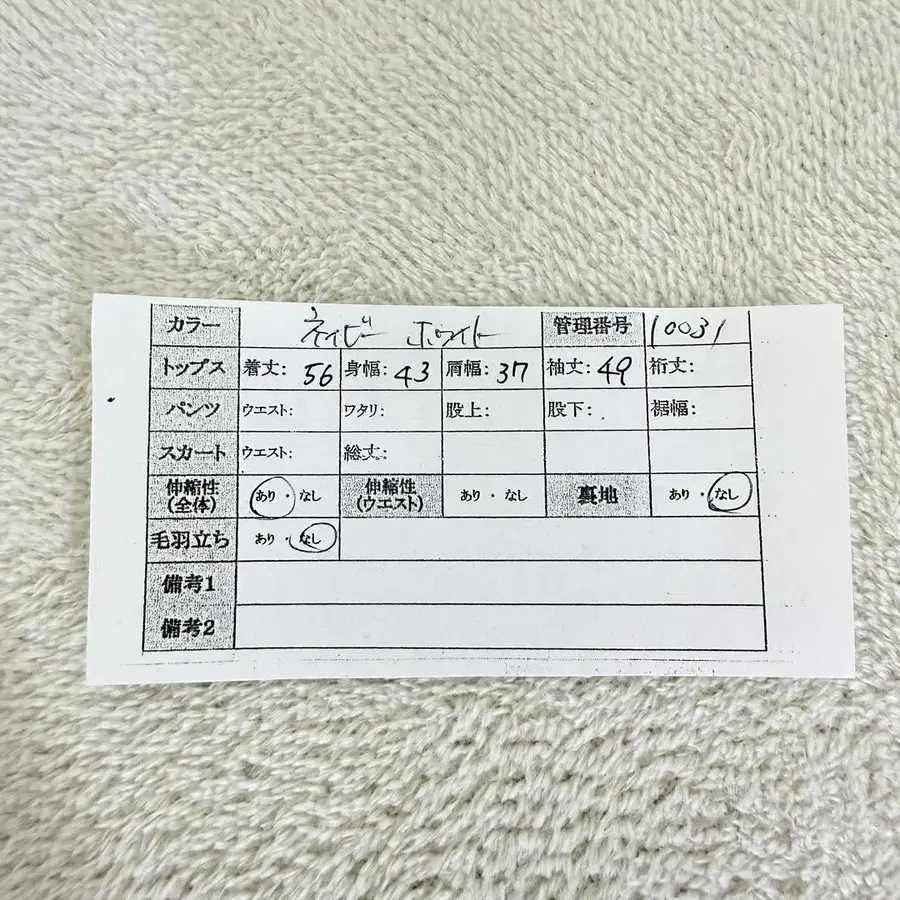 カラー ネイビー ホワイト 管理番号 10031
トップス 着丈: 56 身幅: 43 肩幅: 37 袖丈: 49 裄丈:
パンツ ウエスト: ワタリ: 股上: 股下: 裾幅:
スカート ウエスト: 総丈:
伸縮性(全体) あり・なし 伸縮性(ウエスト) あり・なし 裏地 あり・なし
毛羽立ち あり・なし
備考1
備考2